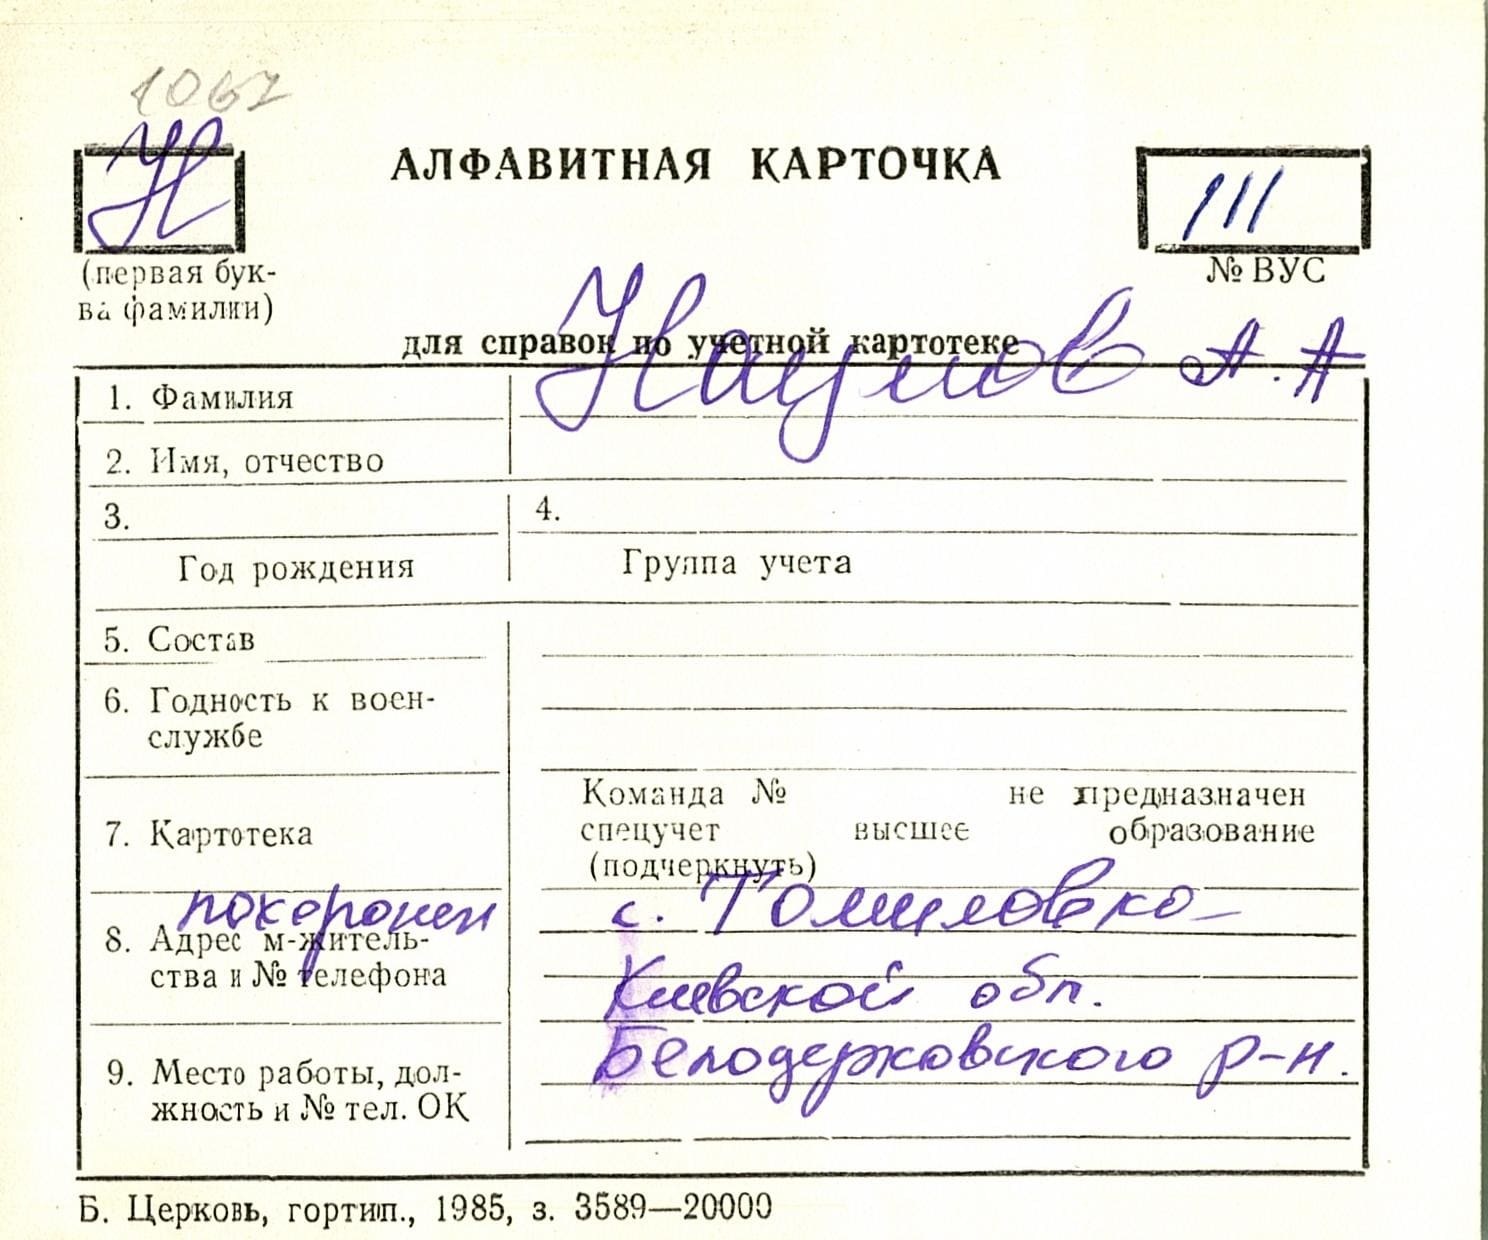 1067
Н
АЛФАВИТНАЯ КАРТОЧКА
111
(первая бук-
ва фамилии)
№ ВУС
для справок по учетной картотеке
1. Фамилия
Наумов А. А
2. Имя, отчество
3.
4.
Год рождения
Группа учета
5. Состав
6. Годность к воен-
службе
7. Картотека
Команда № не предназначен
спецучет высшее образование
(подчеркнуть)
похоронен
8. Адрес м-житель-
ства и № телефона
с. Томиловко-
Киевской обл.
Белоцерковского р-н.
9. Место работы, дол-
жность и № тел. ОК
Б. Церковь, гортип., 1985, з. 3589—20000